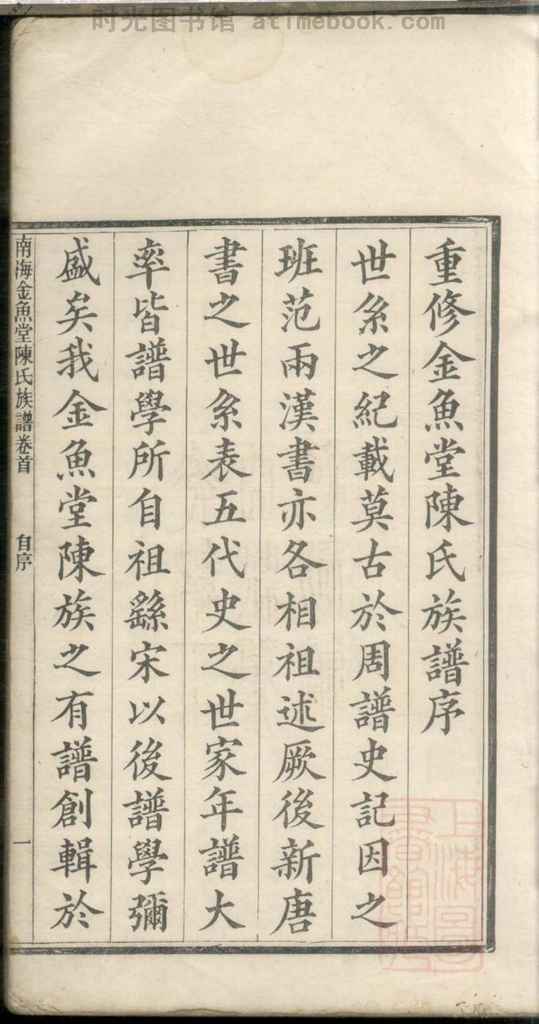 时光图书馆 atimebook.com
重修金魚堂陳氏族譜序
世系之紀載莫古於周譜史記因之
班范兩漢書亦各相祖述厥後新唐
書之世系表五代史之世家年譜大
率皆譜學所自祖繇宋以後譜學彌
盛矣我金魚堂陳族之有譜創輯於
南海金魚堂陳氏族譜卷首 自序 一
上海图書館藏